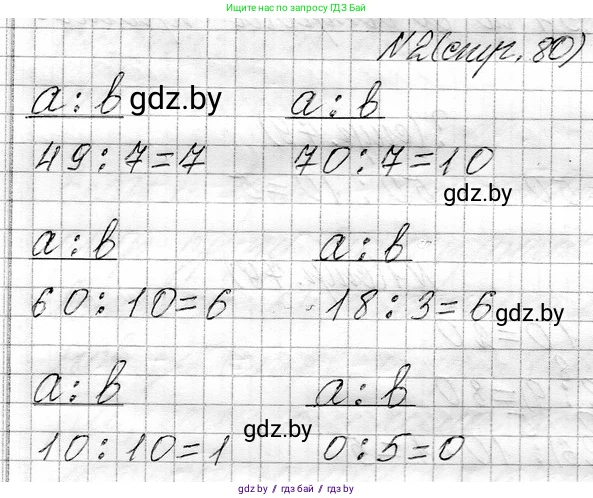 Ищите нас по запросу ГДЗ Бай
N2(стр. 80)
a : b gdz.by a : b
49 : 7 = 7 70 : 7 = 10
gdz.by
a : b a : b
60 : 10 = 6 18 : 3 = 6 gdz.by
a : b a : b
gdz.by
10 : 10 = 1 0 : 5 = 0
gdz.by / гдз бай / gdz.by